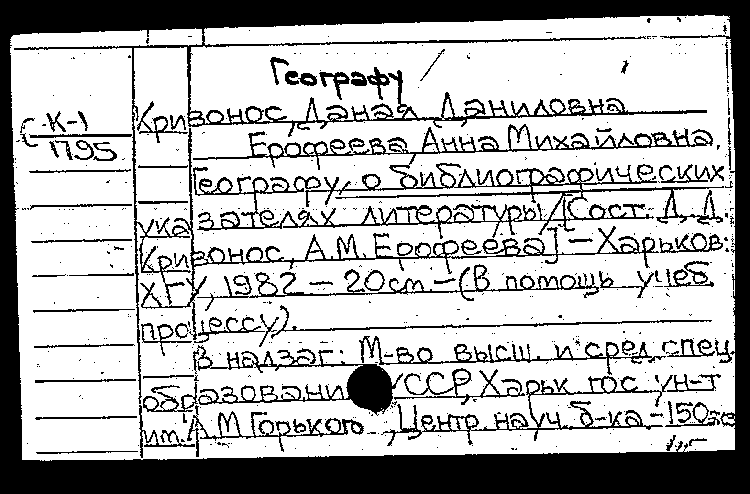 Географу
С-К-1
1795
Кривонос, Даная Даниловна
Ерофеева, Анна Михайловна.
Географу, о библиографических
указателях литературы /[Сост. Д. Д.
Кривонос, А.М. Ерофеева] — Харьков:
ХГУ, 1982 — 20 см — (В помощь учеб.
процессу).
В надзаг: М-во высш. и сред спец.
образовани УССР, Харьк гос. ун-т
им. А М Горького, Центр. науч. б-ка - 150